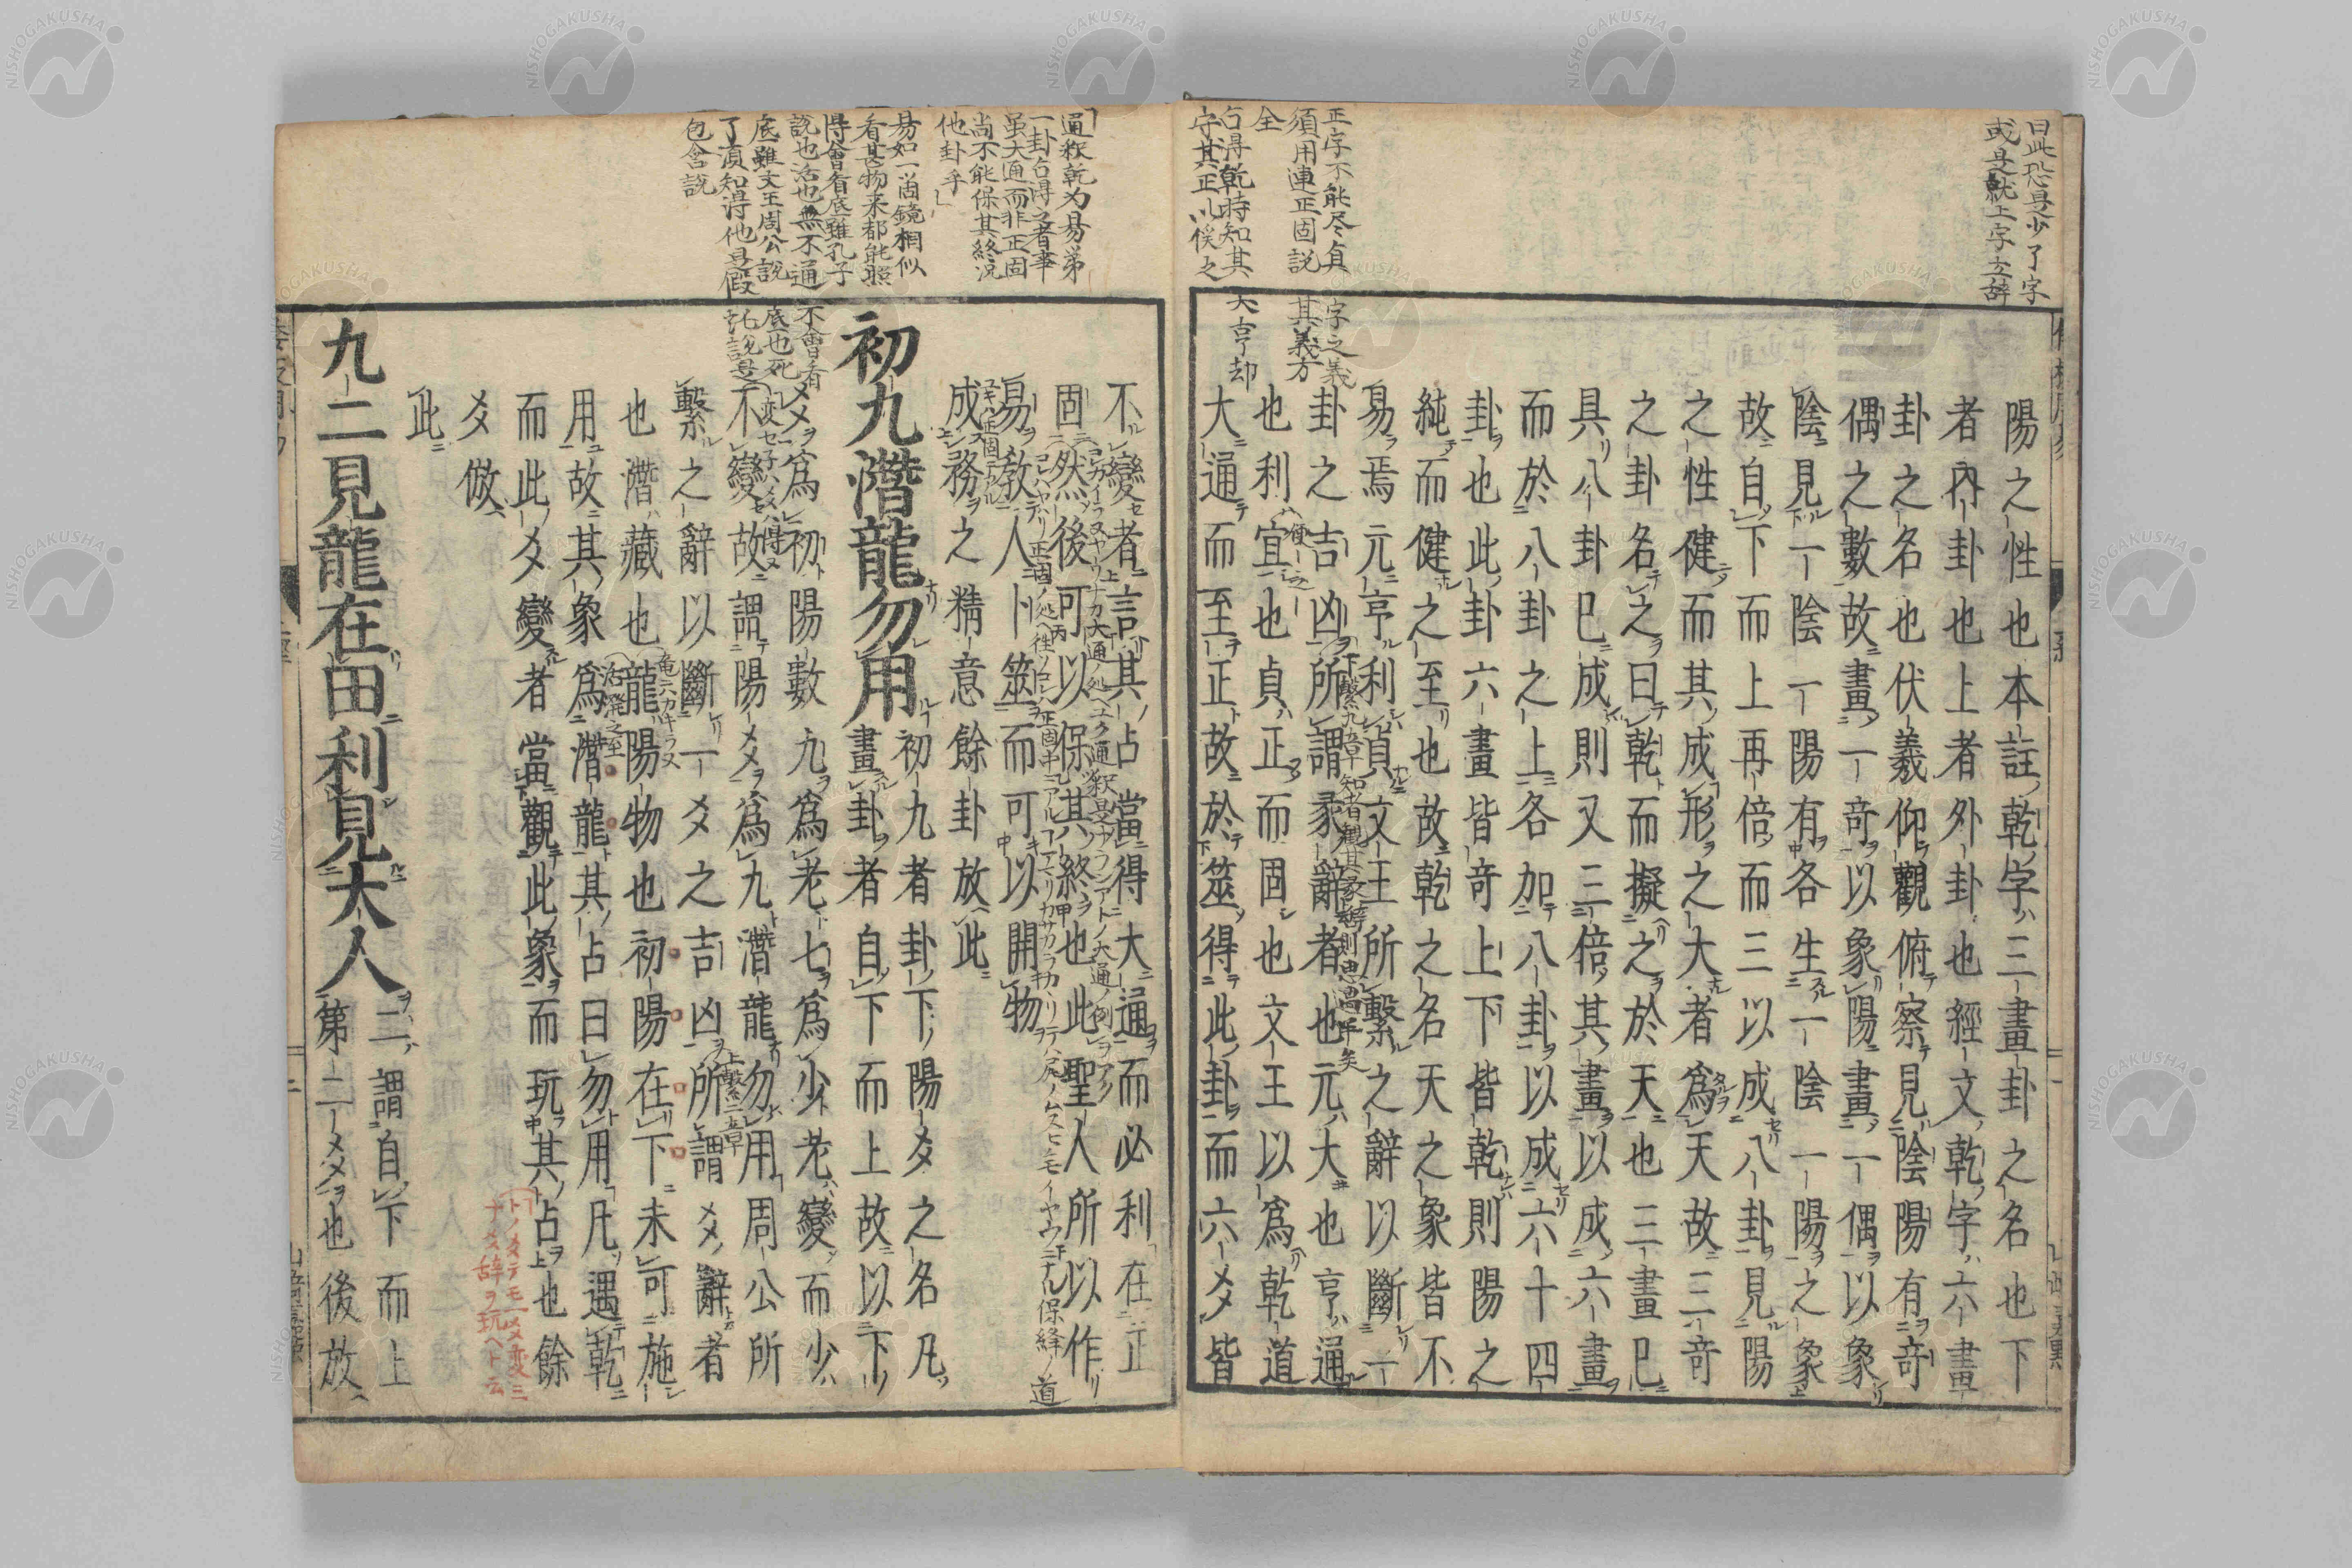 曰此恐是少了字
或是就上字立辞
陽之性也本註乾字三畫卦之名也下
者內卦也上者外卦也經文乾字六畫
卦之名也伏羲仰觀俯察見陰陽有竒
偶之數故畫一竒以象陽畫一偶以象
陰見一陰一陽有各生一陰一陽之象
故自下而上再倍而三以成八卦見陽
之性健而其成形之大者爲天故三竒
之卦名之曰乾而擬之於天也三畫已
具八卦已成則又三倍其畫以成六畫
而於八卦之上各加八卦以成六十四
卦也此卦六畫皆竒上下皆乾則陽之
純而健之至也故乾之名天之象皆不
易焉元亨利貞文王所繫之辭以斷一
正字不能尽貞字之義
須用連正固説其義方
全
卦之吉凶所謂彖辭者也元大也亨通
下繫九章知者觀其彖辞則思過半矣
也利宜也貞正而固也文王以爲乾道
占得乾時知其大亨却
守其正以俟之
大通而至正故於筮得此卦而六爻皆
通釈乾为易弟
一卦占得之者事
虽大通而非正固
尚不能保其終况
他卦乎
不變者言其占當得大通而必利在正
固然後可以保其終也此聖人所以作
易敎人卜筮而可以開物
成務之精意餘卦放此
易如一箇鏡相似
看甚物来都能照
得會看底雖孔子
説也活也無不通不會看
底雖文王周公説底也死
了須知得他是假託説是
包含説
初九潛龍勿用
初九者卦下陽爻之名凡
畫卦者自下而上故以下
爻爲初陽數九爲老七爲少老變而少
不變故謂陽爻爲九潛龍勿用周公所
繫之辭以斷一爻之吉凶所謂爻辭者
上繫二章
也潛藏也龍陽物也初陽在下未可施
用故其象爲潛龍其占曰勿用凡遇乾
而此爻變者當觀此象而玩其占也餘
爻倣
此
九二見龍在田利見大人
二謂自下而上
第二爻也後放
NISHOGAKUSHA